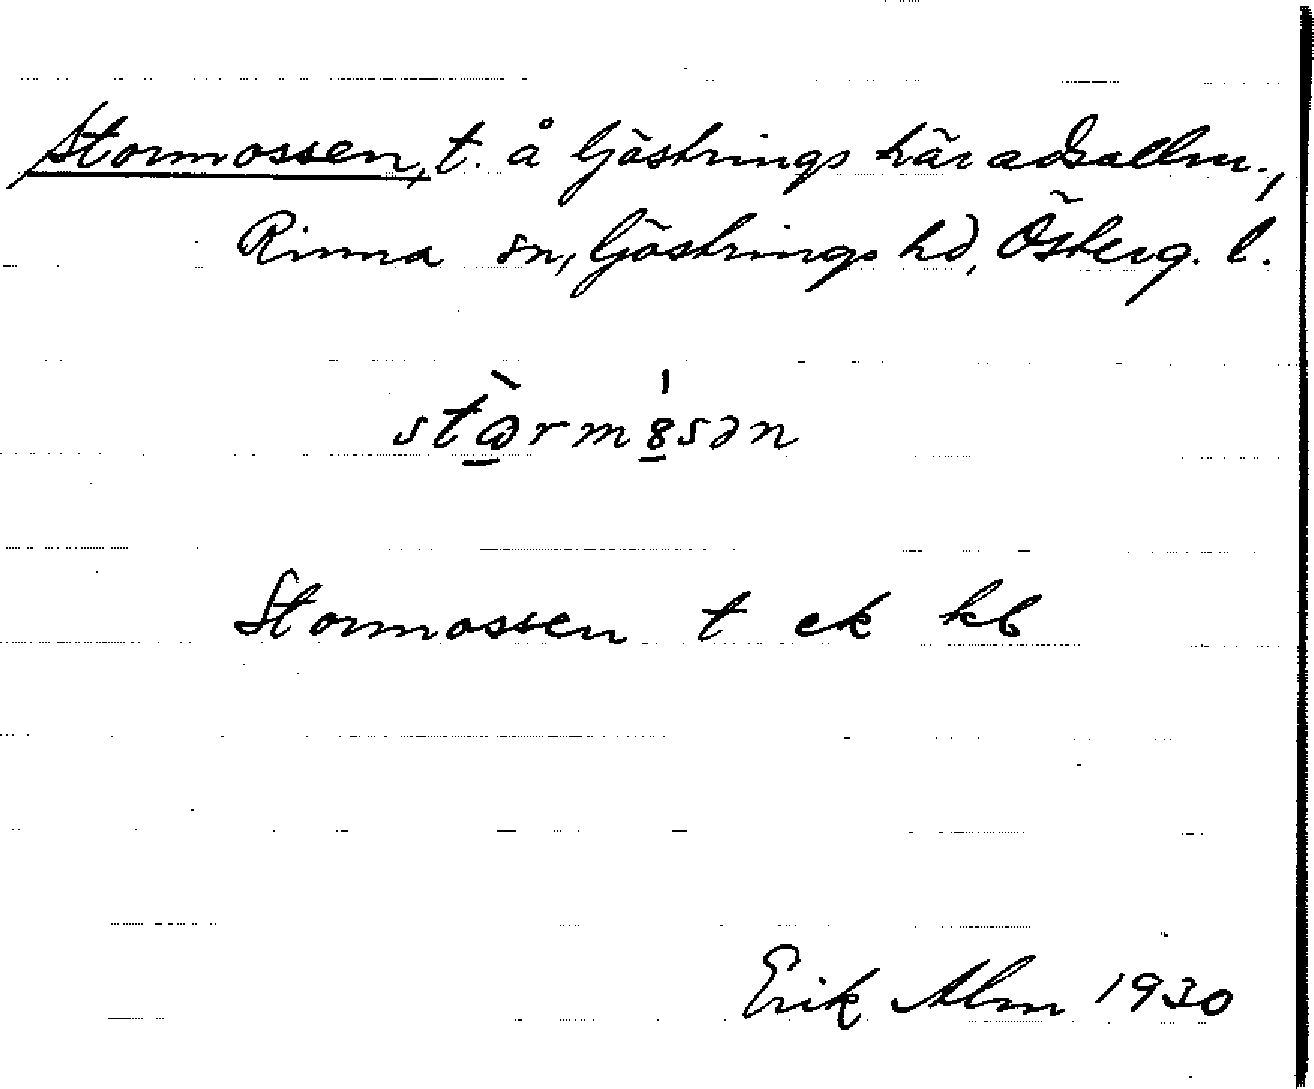 Stormossen, t. å Göstrings häradsallm.,
Rinna sn, Göstrings hd, Österg. l.
Stormossen t ek kb
Erik Alm 1930